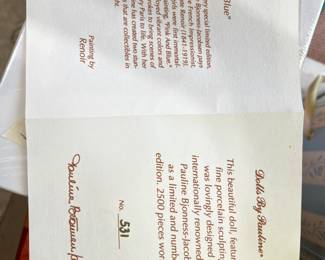 Blue"
very special limited edition,
Bjonness-Jacobsen pays
French Impressionist,
Renoir (1841-1919).
girls were first immortal-
painting, "Pink And Blue."
vibrant colors and
to bring scenes of
Paris to life. With her
has created two stun-
that are collectibles in
Painting by
Renoir
Dolls By Pauline®
This beautiful doll, featur
fine porcelain sculptin
was lovingly designed
internationally renowned
Pauline Bjonness-Jacob
as a limited and numb
edition. 2500 pieces wor
No. 531